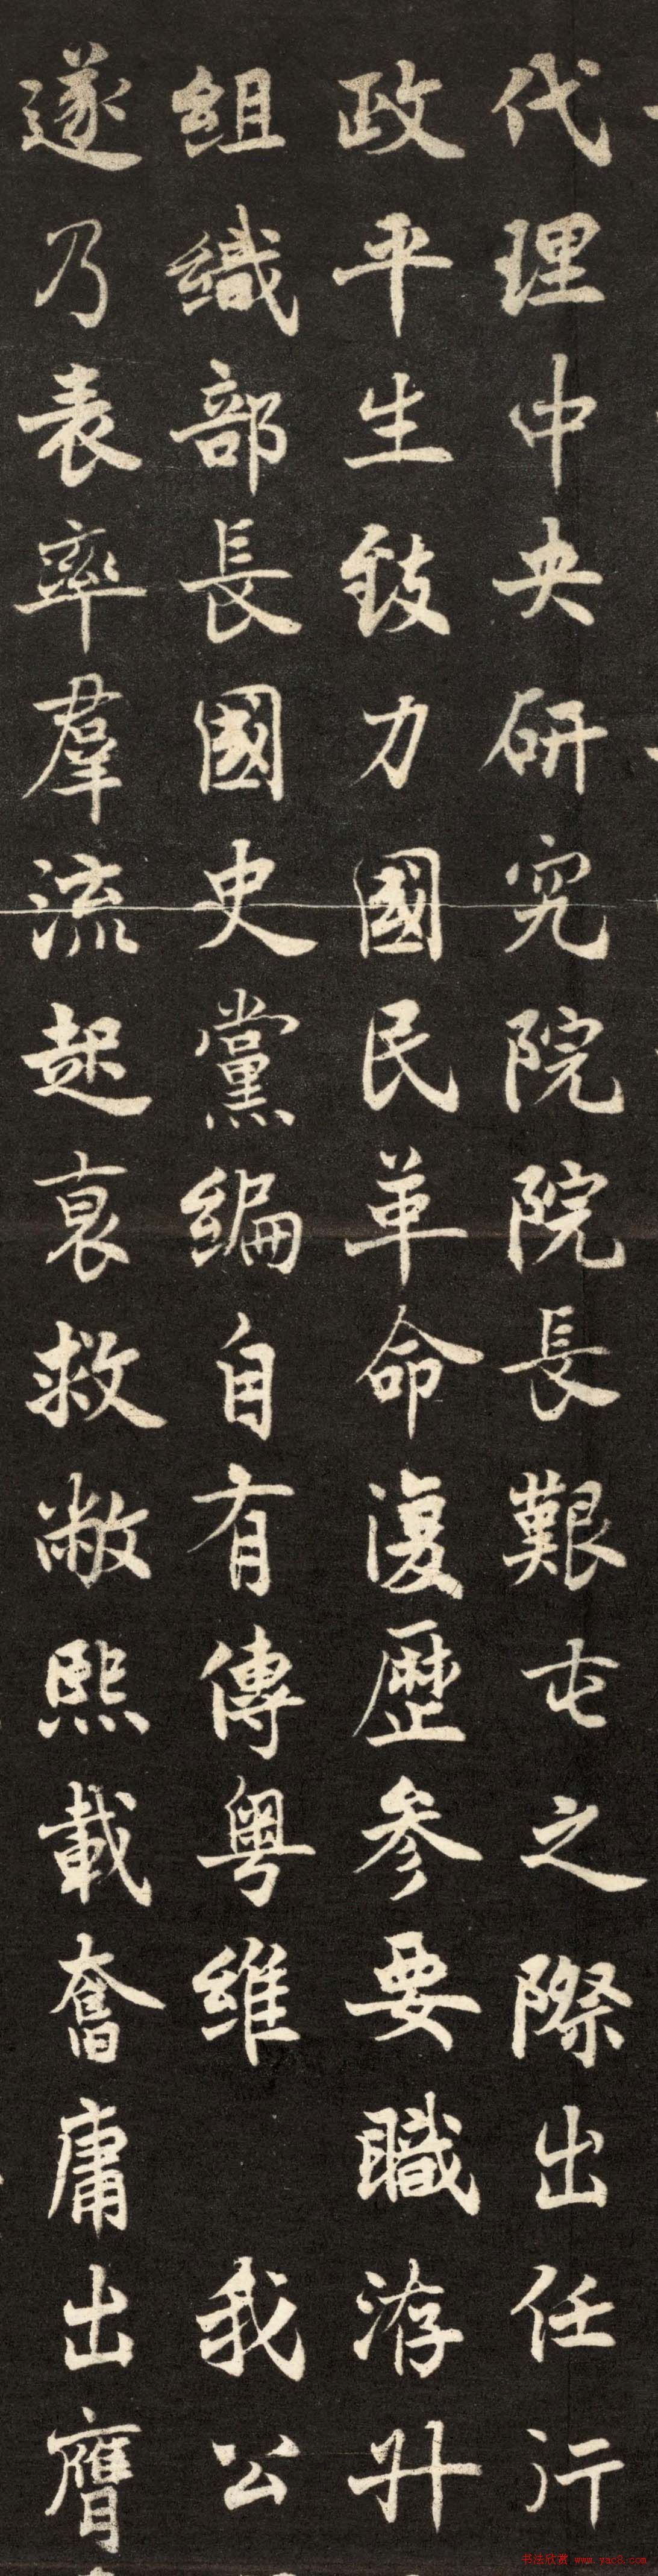 代理中央研究院院長艱屯之際出任行
政平生致力國民革命復歷參要職洊升
組織部長國史黨編自有傳粵維 我公
遂乃表率羣流起衰救敝熙載奮庸出膺
书法欣赏 www.yac8.com